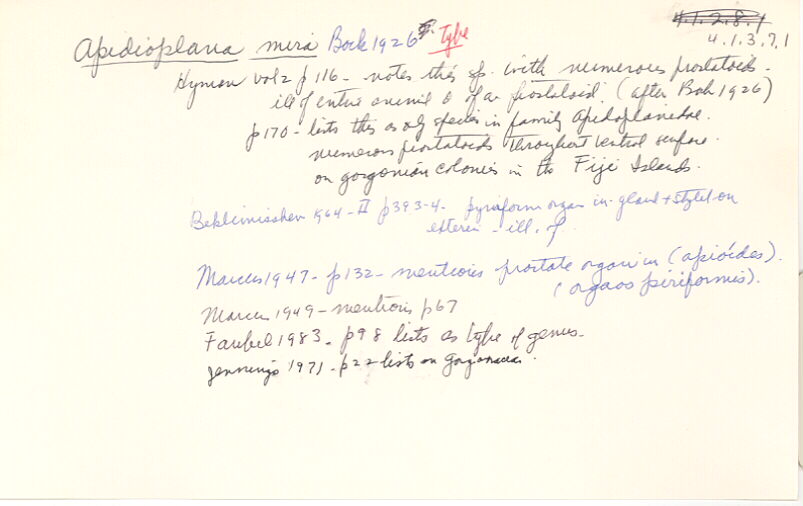 4.1.2.8.1
4.1.3.7.1
Apidioplana mira Bock 1926 type
Hyman vol 2 p 116 - notes this sp. with numerous prostatoids.
ill of entire animal & of a prostatoid (after Bock 1926)
p 170 - lists this as only species in family Apidioplanidae.
numerous prostatoids throughout ventral surface.
on gorgonian colonies in the Fiji Islands.
Beklemischev 1964 - II p 393-4. pyriform organ in gland + stylet on
exterior - ill. of.
Marcus 1947 - p 132 - mentions prostate organ in (apióides).
(orgaos piriformis).
Marcus 1949 - mentions p 67
Faubel 1983 - p 98 lists as type of genus.
Jennings 1971 - p 22 lists on Gorgonacea.